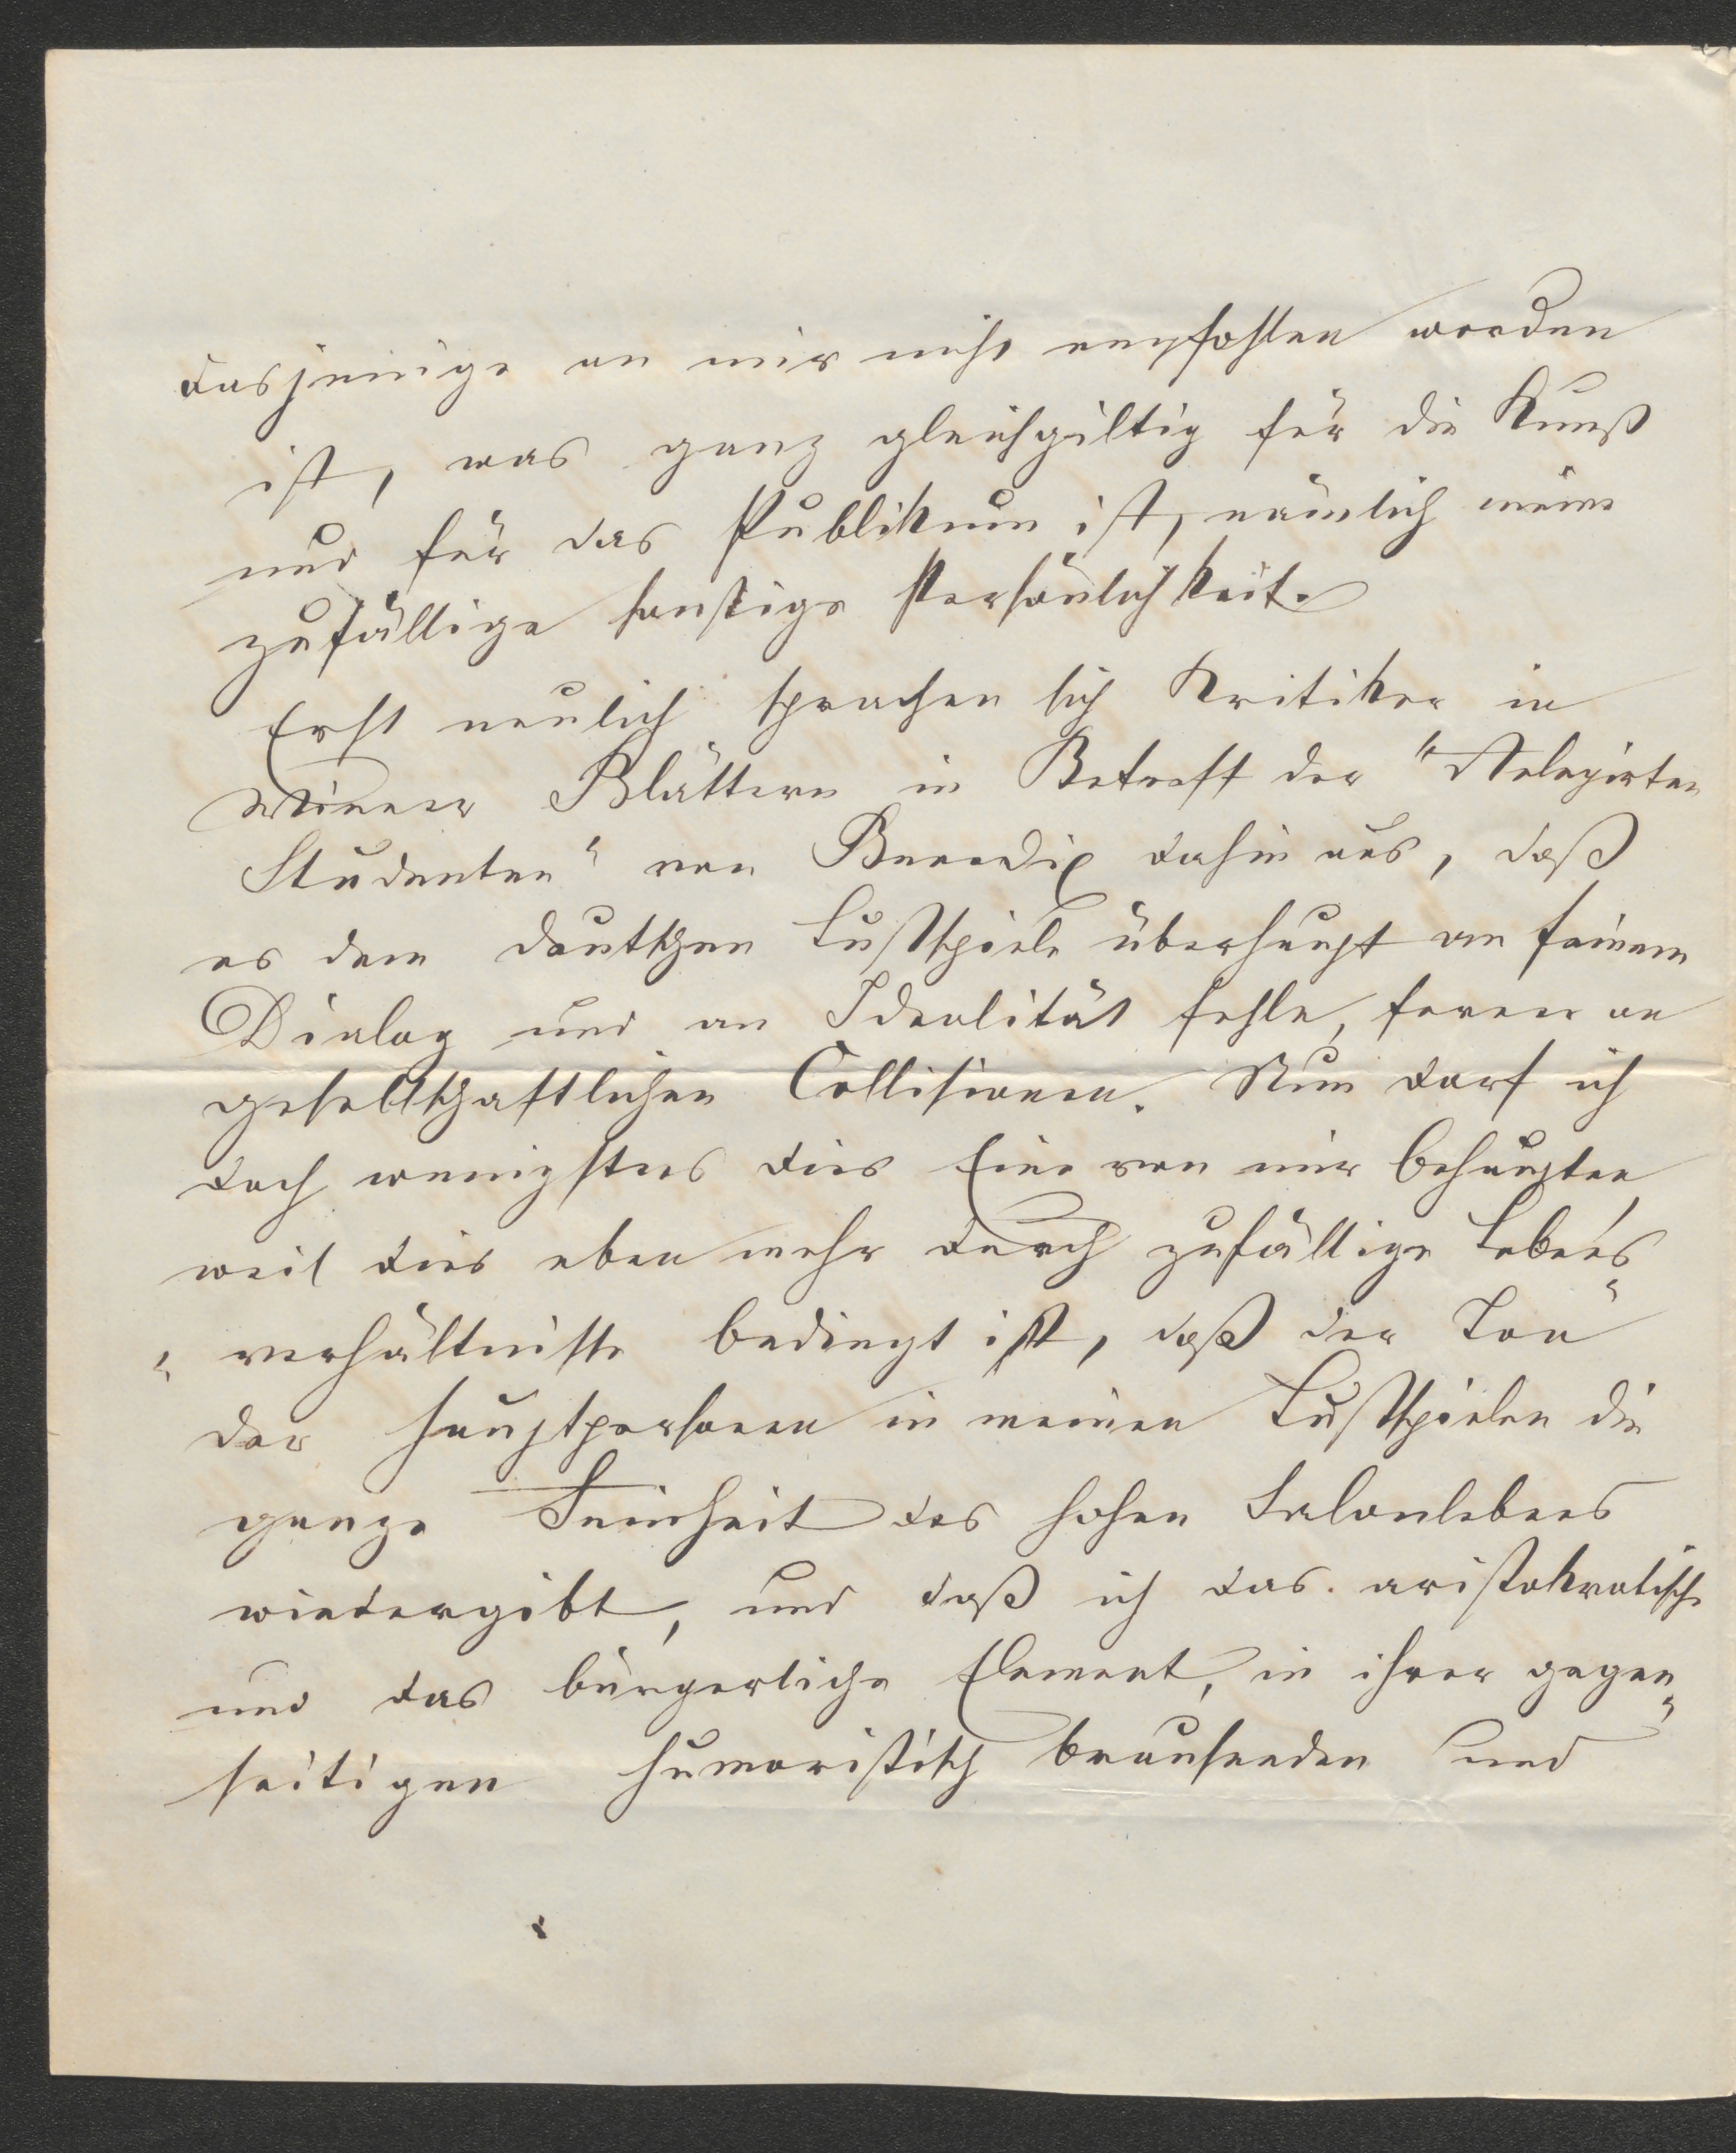 dasjenige an mir nicht empfohlen worden
ist, was ganz gleichgiltig für die Kunst
und für das Publikum ist, nämlich meine
zufällige sonstige Persönlichkeit.
Erst neulich sprachen sich Kritiker in
Wiener Blättern in Betreff der "Relegirten
Studenten" von Benedix dahin aus, daß
es dem deutschen Lustspiele überhaupt an feinem
Dialog und an Idealität fehle, ferner an
gesellschaftlichen Collisionen. Nun darf ich
doch wenigstens dies Eine von mir behaupten,
weil dies eben mehr durch zufällige Lebens„
„verhältnisse bedingt ist, daß der Ton
der Hauptpersonen in meinen Lustspielen die
ganze Feinheit des hohen Salonlebens
wiedergibt, und daß ich das aristokratische
und das bürgerliche Element, in ihrer gegen„
seitigen humoristisch brausenden und